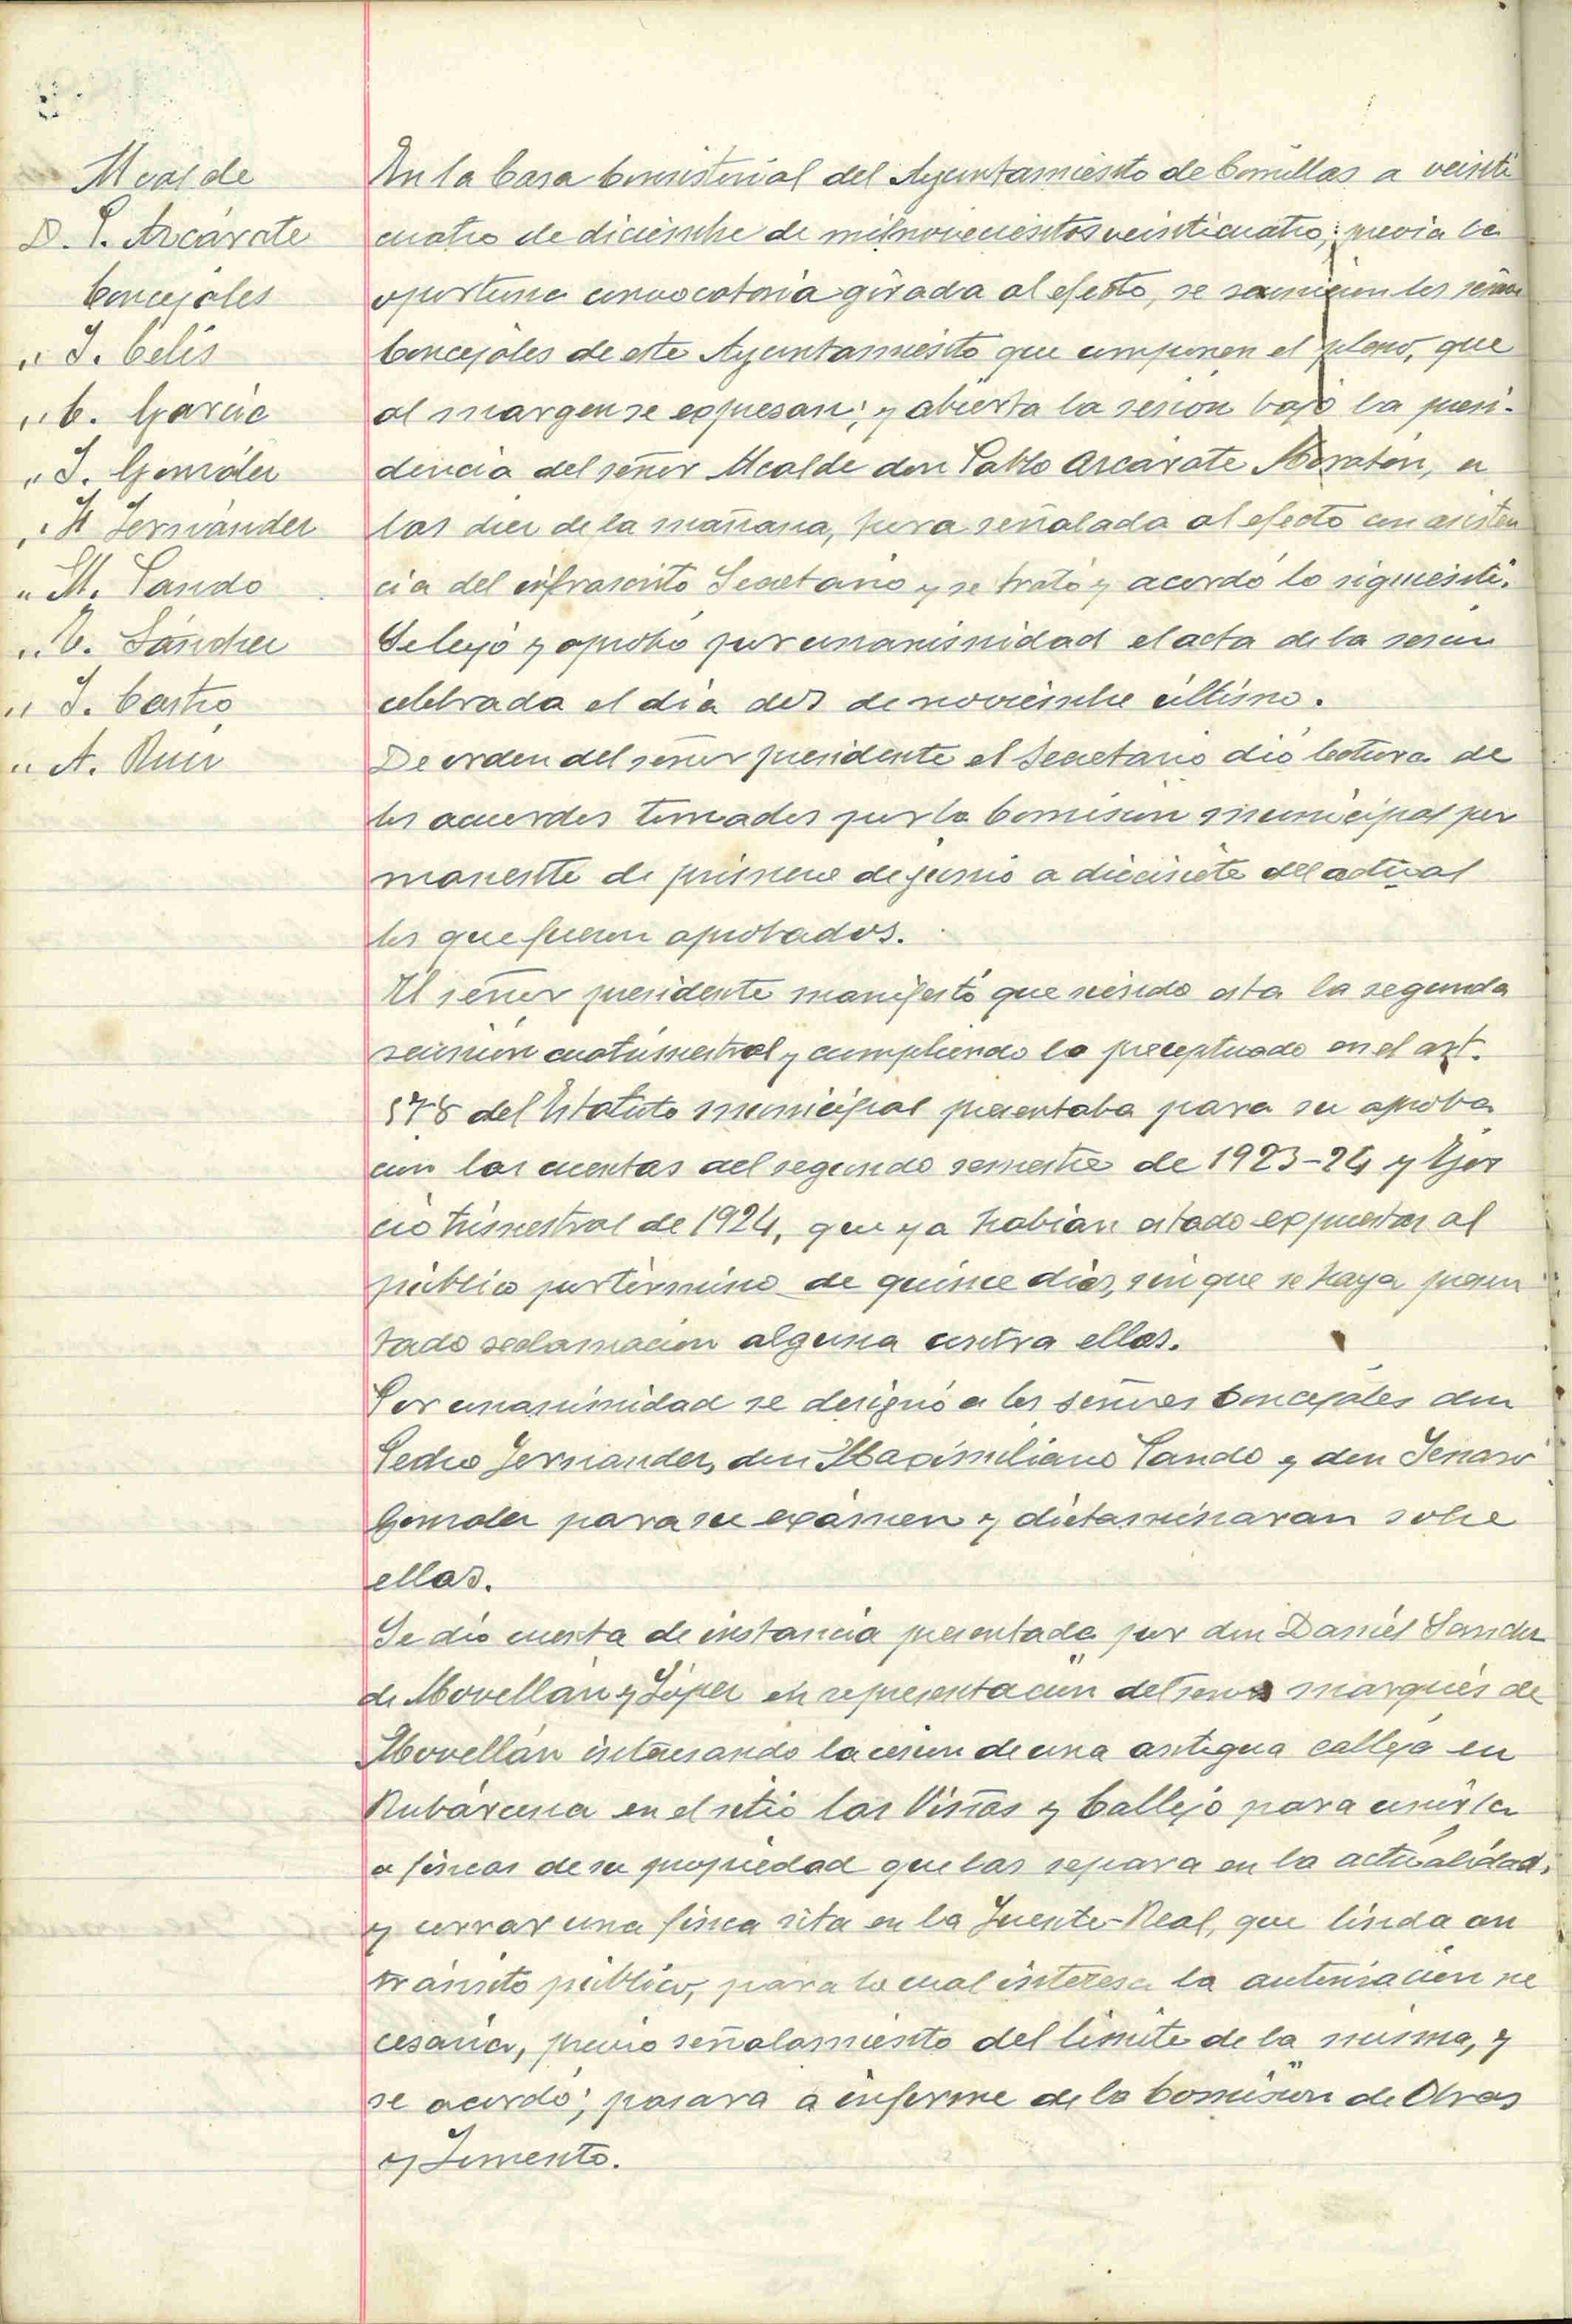 Alcalde
D. P. Azcárate
Concejales
" J. Celis
" C. García
" J. González
" P. Fernández
" M. Pando
" V. Sánchez
" J. Castro
" A. Ruiz
En la Casa Consistorial del Ayuntamiento de Comillas a veinti
cuatro de diciembre de mil novecientos veinticuatro; previa la
oportuna convocatoria girada al efecto, se reunieron los señores
Concejales de este Ayuntamiento que componen el pleno, que
al margen se expresan; y abierta la sesión bajo la presi-
dencia del señor Alcalde don Pablo Azcárate Moratón, a
las diez de la mañana, hora señalada al efecto con asisten
cia del infrascrito Secretario y se trató y acordó lo siguiente.
Se leyó y aprobó por unanimidad el acta de la sesión
celebrada el día dos de noviembre último.
De orden del señor presidente el Secretario dió lectura de
los acuerdos tomados por la Comisión municipal per
manente de primero de junio a diecisiete del actual
los que fueron aprobados.
El señor presidente manifestó que siendo esta la segunda
reunión cuatrimestral y cumpliendo lo preceptuado en el art.
578 del Estatuto municipal presentaba para su aproba
ción las cuentas del segundo semestre de 1923-24 y Ejer
cio trimestral de 1924, que ya habían estado expuestas al
público por término de quince días, sin que se haya presen
tado reclamación alguna contra ellas.
Por unanimidad se designó a los señores Concejales don
Pedro Fernández, don Maximiliano Pando y don Jenaro
González para su exámen y dictaminaran sobre
ellas.
Se dió cuenta de instancia presentada por don Daniel Sánchez
de Movellán y López en representación del señor marqués de
Movellán interesando la cesión de una antigua calleja en
Rubárcena en el sitio las Viñas y Callejo para unirla
a fincas de su propiedad que las separa en la actualidad,
y cerrar una finca sita en la Fuente-Real, que linda con
tránsito público, para lo cual interesa la autorización ne
cesaria, previo señalamiento del límite de la misma, y
se acordó; pasara a informe de la Comisión de Obras
y Fomento.